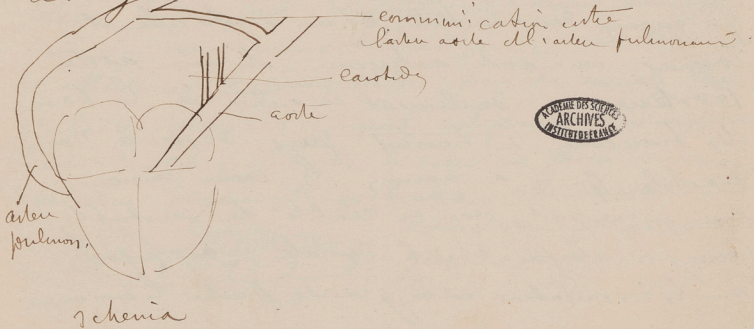 communication entre
l'artère aorte et l'artère pulmonaire.
carotides
aorte
ACADEMIE DES SCIENCES
ARCHIVES
INSTITUT DE FRANCE
artère
pulmon.
schema